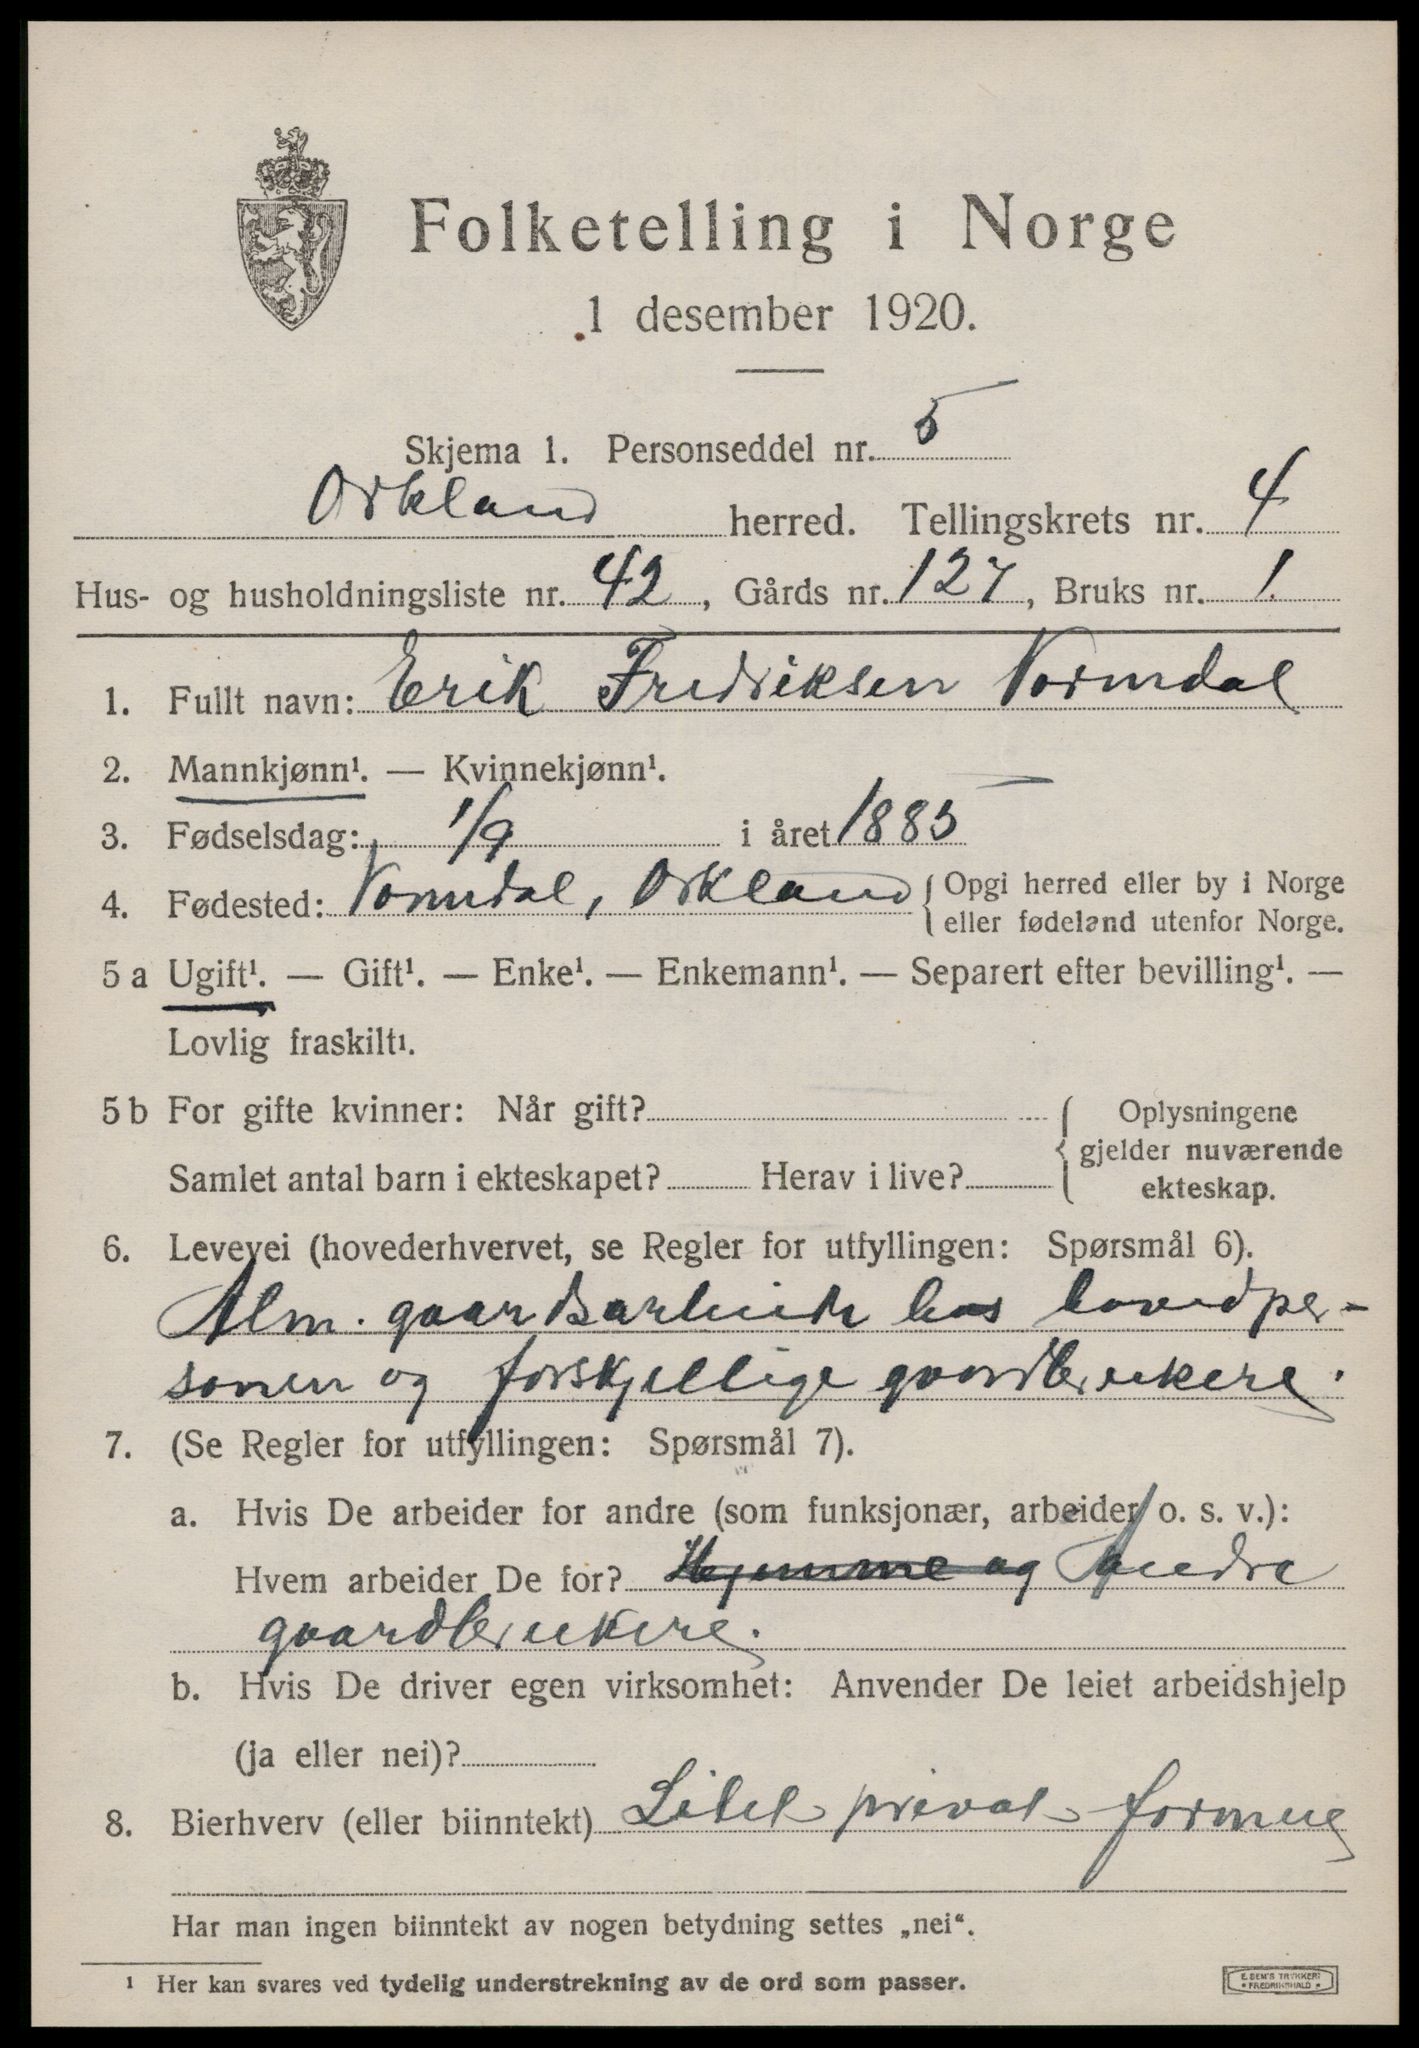 Folketelling i Norge
1 desember 1920.
Skjema 1. Personseddel nr. 5
Orkland herred. Tellingskrets nr. 4
Hus- og husholdningsliste nr. 42, Gårds nr. 127, Bruks nr. 1.
1. Fullt navn: Erik Fredriksen Vormdal
2. Mannkjønn¹. — Kvinnekjønn¹.
3. Fødselsdag: 1/9 i året 1885
4. Fødested: Vormdal, Orkland { Opgi herred eller by i Norge
eller fødeland utenfor Norge.
5 a Ugift¹. — Gift¹. — Enke¹. — Enkemann¹. — Separert efter bevilling¹. —
Lovlig fraskilt¹.
5 b For gifte kvinner: Når gift?
Samlet antal barn i ekteskapet? Herav i live?
Oplysningene
gjelder nuværende
ekteskap.
6. Levevei (hovederhvervet, se Regler for utfyllingen: Spørsmål 6).
Alm. gaardsarbeide hos hovedper-
sonen og forskjellige gaardbrukere.
7. (Se Regler for utfyllingen: Spørsmål 7).
a. Hvis De arbeider for andre (som funksjonær, arbeider o. s. v.):
Hvem arbeider De for? Hjemme og Andre
gaardbrukere.
b. Hvis De driver egen virksomhet: Anvender De leiet arbeidshjelp
(ja eller nei)?
8. Bierhverv (eller biinntekt) Litet privat formue
Har man ingen biinntekt av nogen betydning settes „nei“.
¹ Her kan svares ved tydelig understrekning av de ord som passer.
E. SEM'S TRYKKERI
FREDRIKSHALD